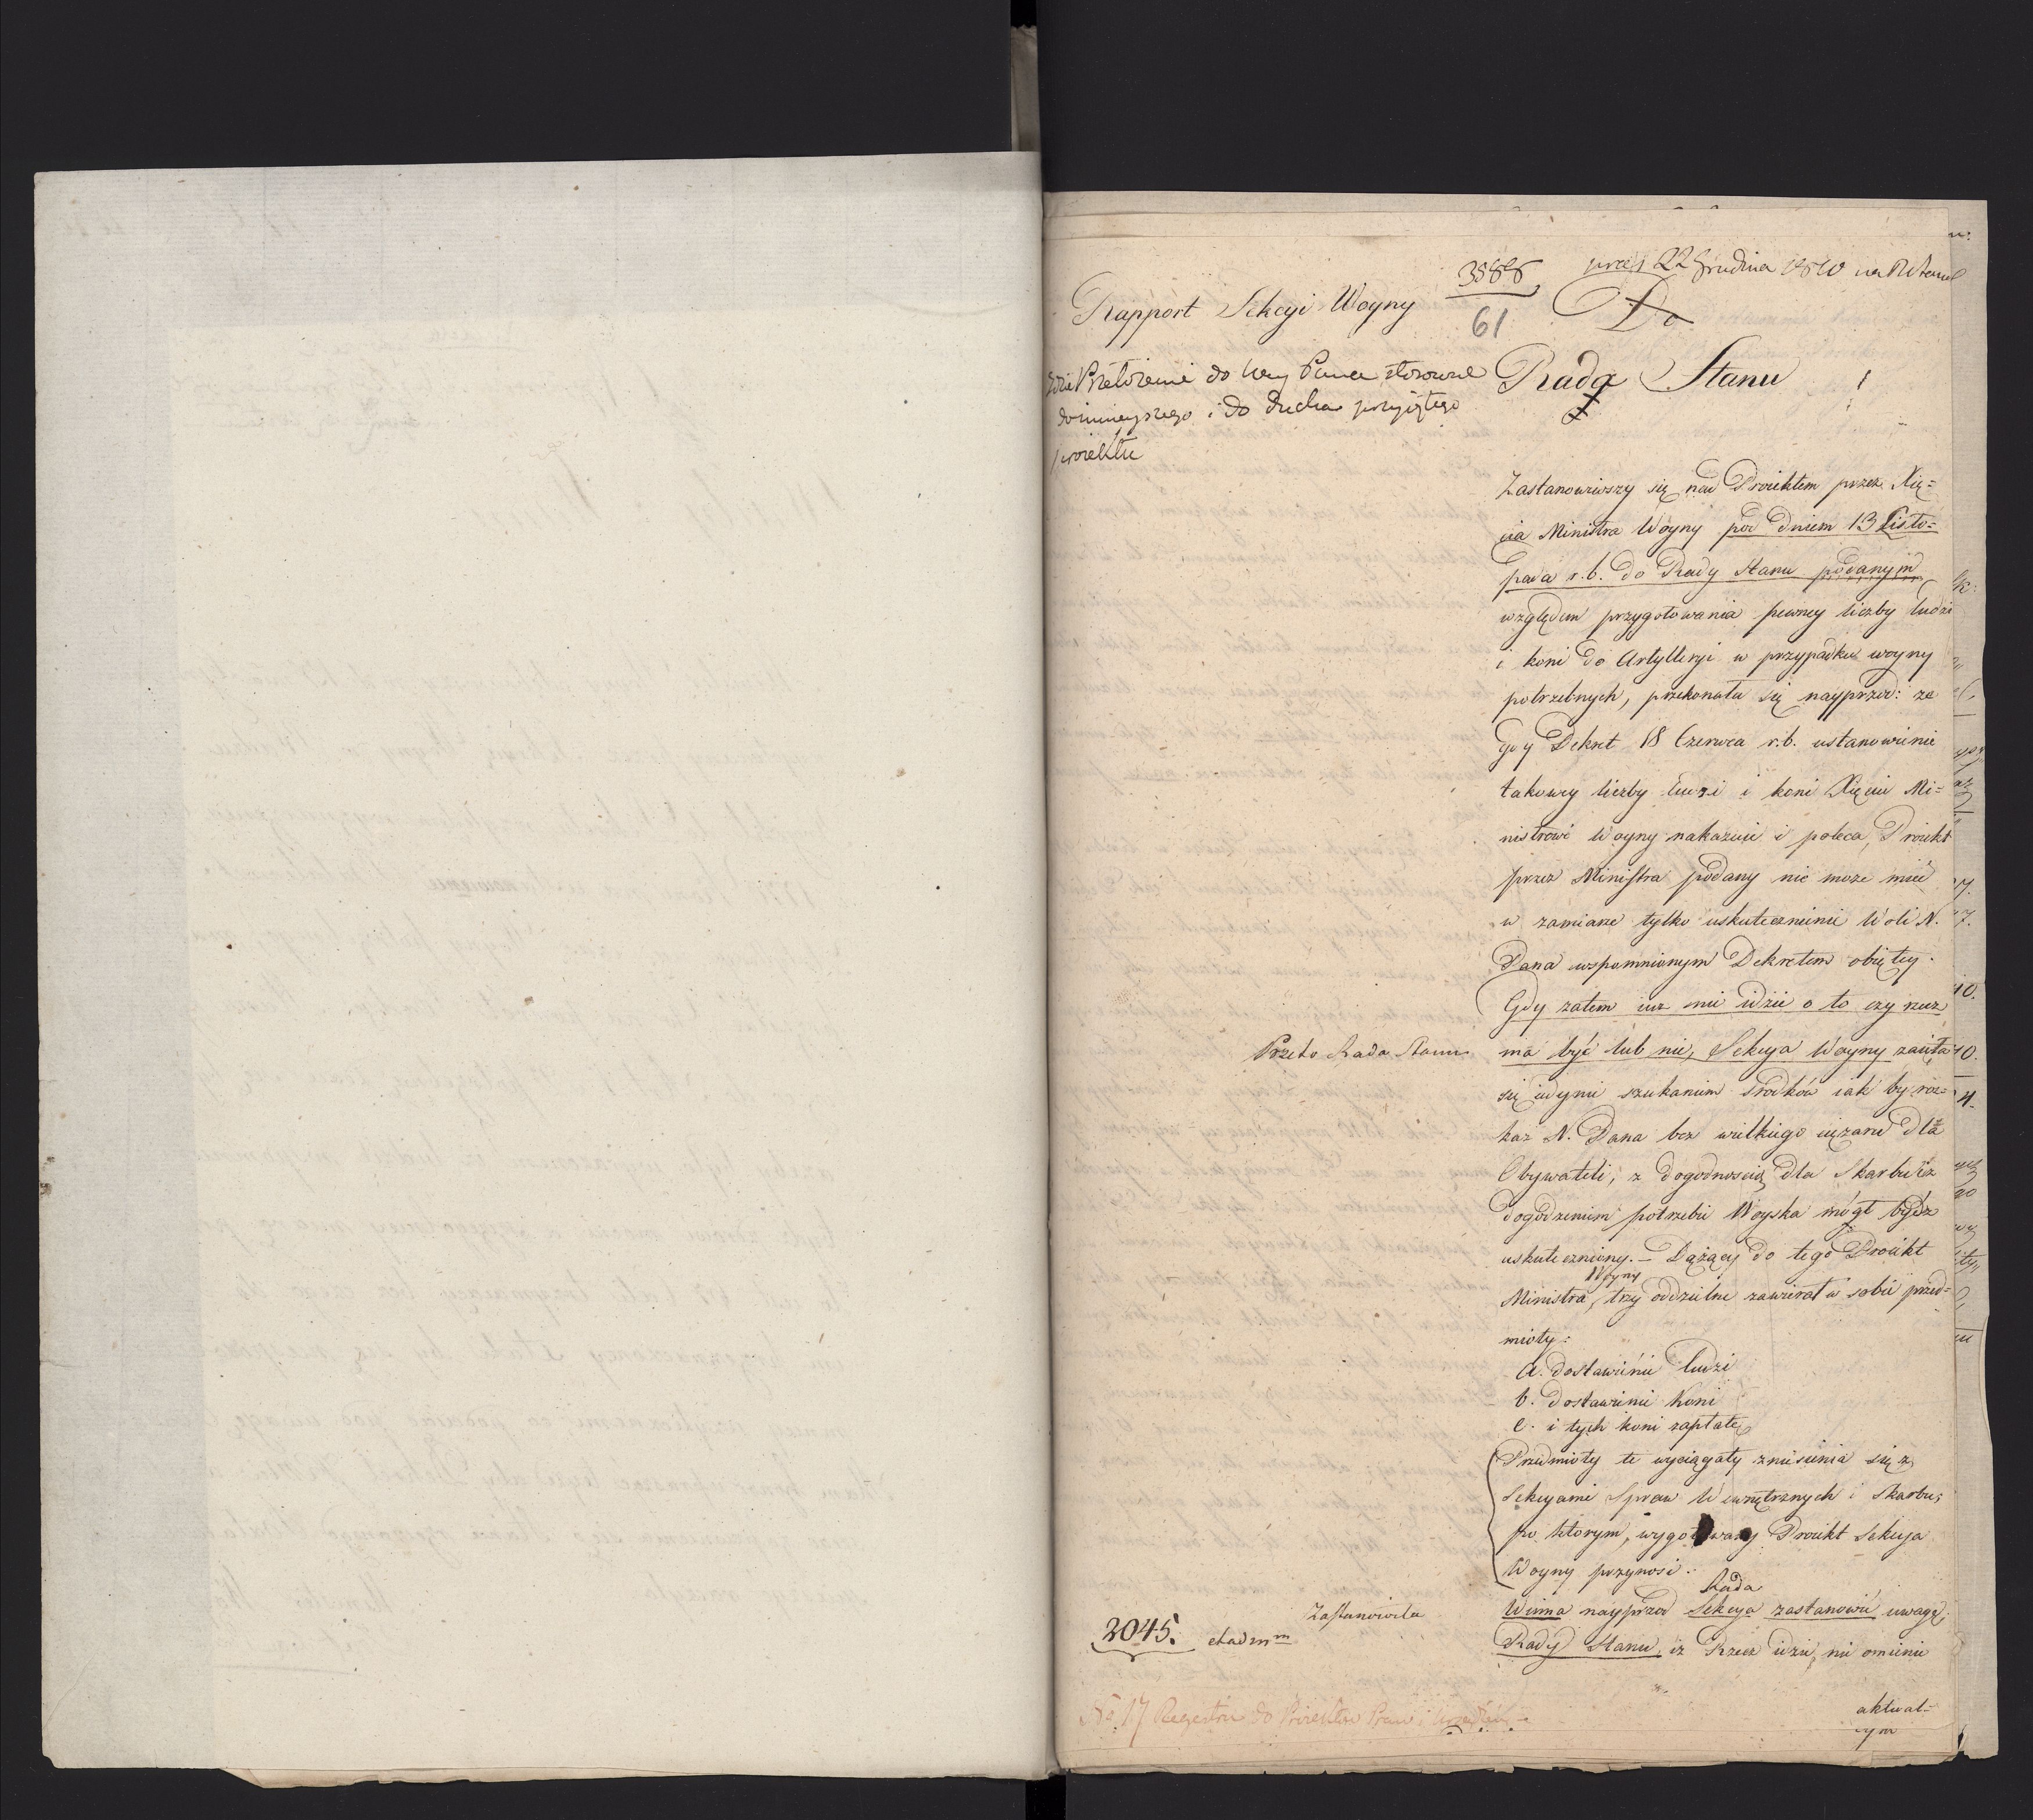 3888
61
22 Grudnia 1810 na
Do
Rapport Sekcyi Woyny
Rada Stanu
Przełożenie do stosowne
do ninieyszego i do ducha przyiętego
proiektu
Zastanowiwszy się nad Proiektem przez Xię=
cia Ministra Woyny pod dniem 13 Listo=
pada r.b. do Rady Stanu podanym
względem przygotowania pewney liczby ludzi
i koni do Artylleryi w przypadku woyny
potrzebnych, przekonała się nayprzód: że
gdy Dekret 18 Czerwca r.b. ustanowienie
takowey liczby ludzi i koni Xięciu Mi=
nistrowi Woyny nakazuie i poleca, Proiekt
przez Ministra podany nie może mieć
w zamiarze tylko uskutecznienie Woli N.
Pana wspomnionym Dekretem obiętey.
Gdy zatem iuż nie idzie o to czy rzecz
Przeto Rada Stanu
ma być lub nie, Sekcya Woyny zaięła
się iedynie szukaniem środków iak by roz=
kaz N. Pana bez wielkiego ciężaru dla
Obywateli, z dogodnością dla Skarbu i z
dogodzeniem potrzebie Woyska mógł bydź
uskuteczniony. – Dążący do tego Proiekt
Woyny
Ministra, trzy oddzielne zawierał w sobie przed=
mioty:
a. dostawienie ludzi
b. dostawienie koni
c. i tych koni zapłatę
Przedmioty te wyciągały zniesienia się z
Sekcyami Spraw Wewnętrznych i Skarbu;
po którym, wygotowany Proiekt Sekcya
Woyny przynosi.
Rada
Zastanowiła
Winna nayprzód Sekcya zastanowić uwagę
2045.
Rady Stanu, iż Rzecz idzie, nie omienie
No 17 Regestru do Proiektów Praw i Urządzeń
aktual=